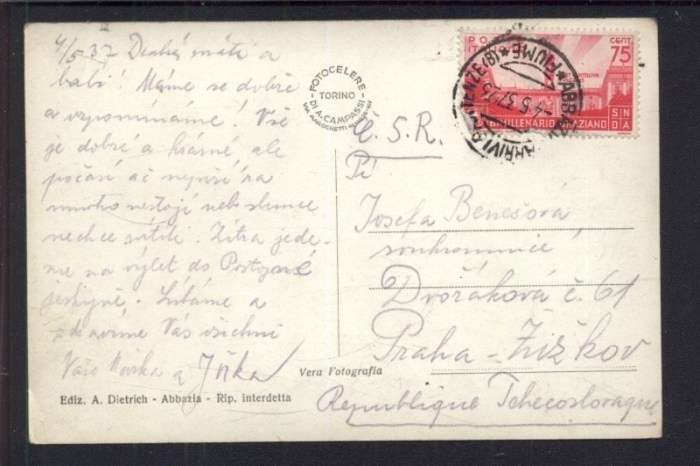 4/5 37 Drahá máti a
babi! Máme se dobře
a vzpomínáme! Vše
je dobré a krásné, ale
počasí ač neprší za
mnoho nestojí neb slunce
nechce svítiti. Zítra jede-
me na výlet do Postojné
jeskyně. Líbáme a
zdravíme Vás všichni
Vaše a Jiřka
Ediz. A. Dietrich - Abbazia - Rip. interdetta
FOTOCELERE
TORINO
DI A. CAMPASSI
Vera Fotografia
POSTE
ITALIANE
CENT. 75
BIMILLENARIO ORAZIANO
S N
D A
ABBAZIA
FIUME
ARRIVI E PARTENZE
-4 5 37
Č. S. R.
Pí
Josefa Benešová
soukromnice
Dvořáková č. 61
Praha - Žižkov
Republique Tchecoslovaque